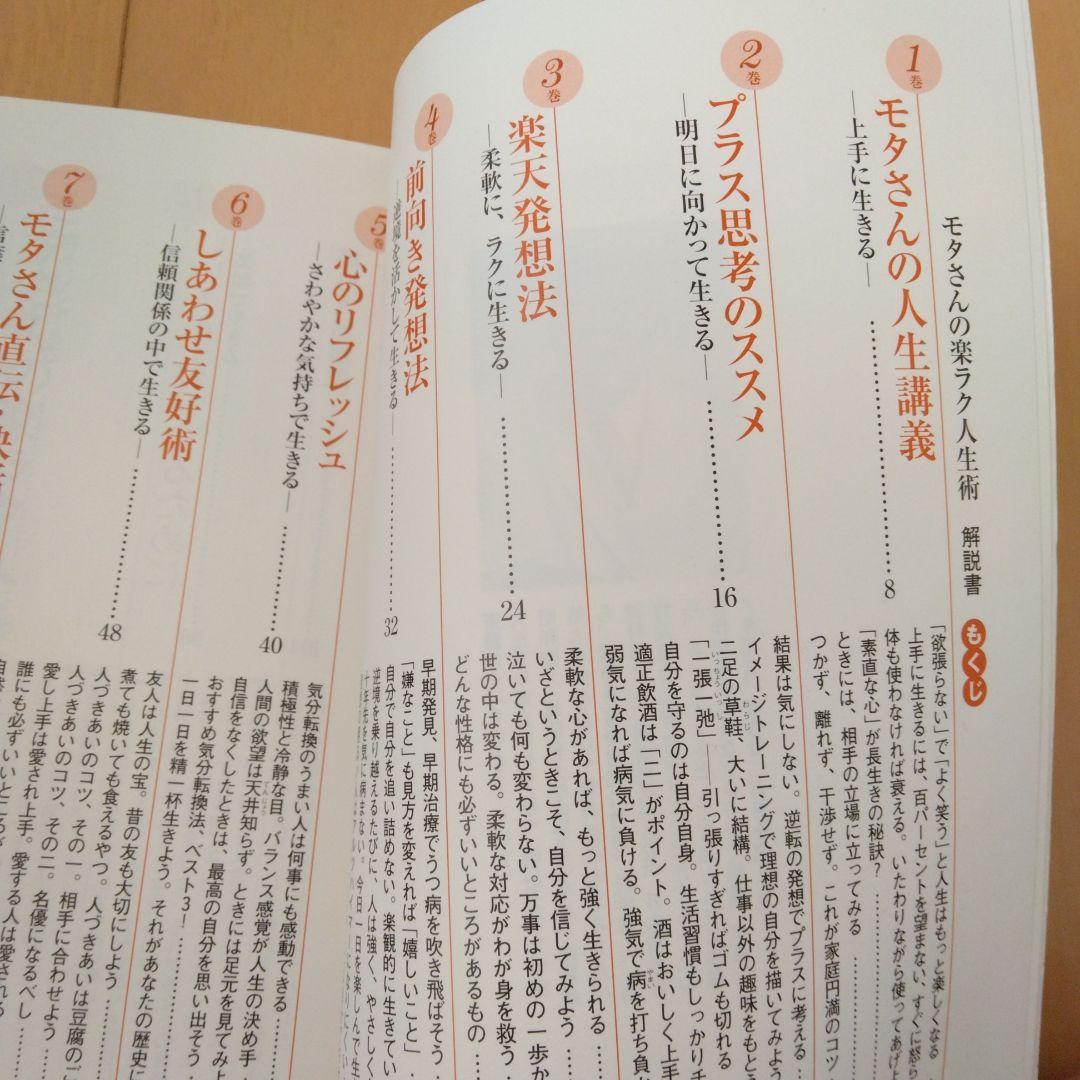 モタさんの楽ラク人生術 解説書 もくじ
1巻
モタさんの人生講義
―上手に生きる―
8
「欲張らない」で「よく笑う」と人生はもっと楽しくなる
上手に生きるには、百パーセントを望まない、すぐに怒ら
体も使わなければ衰える。いたわりながら使ってあげよ
「素直な心」が長生きの秘訣?
ときには、相手の立場に立ってみる
つかず、離れず、干渉せず。これが家庭円満のコツ
2巻
プラス思考のススメ
―明日に向かって生きる―
16
結果は気にしない。逆転の発想でプラスに考える
イメージトレーニングで理想の自分を描いてみよう
二足の草鞋、大いに結構。仕事以外の趣味をもとう
「一張一弛」――引っ張りすぎればゴムも切れる
自分を守るのは自分自身。生活習慣もしっかりチ
適正飲酒は「二」がポイント。酒はおいしく上手
弱気になれば病気に負ける。強気で病を打ち負
3巻
楽天発想法
―柔軟に、ラクに生きる―
24
柔軟な心があれば、もっと強く生きられる
いざというときこそ、自分を信じてみよう
泣いても何も変わらない。万事は初めの一歩か
世の中は変わる。柔軟な対応がわが身を救う
どんな性格にも必ずいいところがあるもの
4巻
前向き発想法
―逆境を活かして生きる―
32
早期発見、早期治療でうつ病を吹き飛ばそう
「嫌なこと」も見方を変えれば「嬉しいこと」
自分で自分を追い詰めない。楽観的に生きてい
逆境を乗り越えるたびに、人は強く、やさしく
十年先を気に病まない。今日一日を楽しんで生
5巻
心のリフレッシュ
―さわやかな気持ちで生きる―
40
気分転換のうまい人は何事にも感動できる
積極性と冷静な目。バランス感覚が人生の決め手
人間の欲望は天井知らず。ときには足元を見てみよ
自信をなくしたときは、最高の自分を思い出そう
おすすめ気分転換法、ベスト3!
一日一日を精一杯生きよう。それがあなたの歴史に
6巻
しあわせ友好術
―信頼関係の中で生きる―
48
友人は人生の宝。昔の友も大切にしよう
煮ても焼いても食えるやつ。人づきあいは豆腐のご
人づきあいのコツ、その一。相手に合わせよう
人づきあいのコツ、その二。名優になるべし
愛し上手は愛され上手。愛する人は愛される
誰にも必ずいいところが
7巻
モタさん直伝・